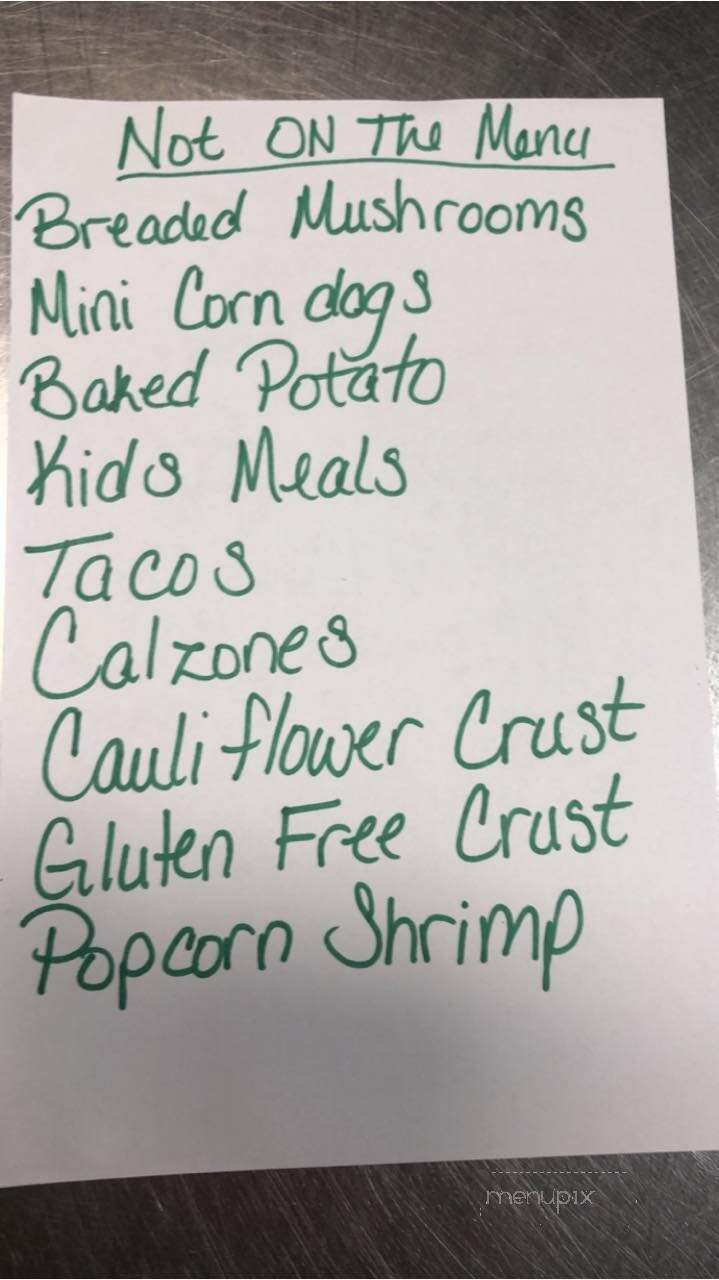 Not ON The Menu
Breaded Mushrooms
Mini Corn dogs
Baked Potato
Kids Meals
Tacos
Calzones
Cauliflower Crust
Gluten Free Crust
Popcorn Shrimp
menupix